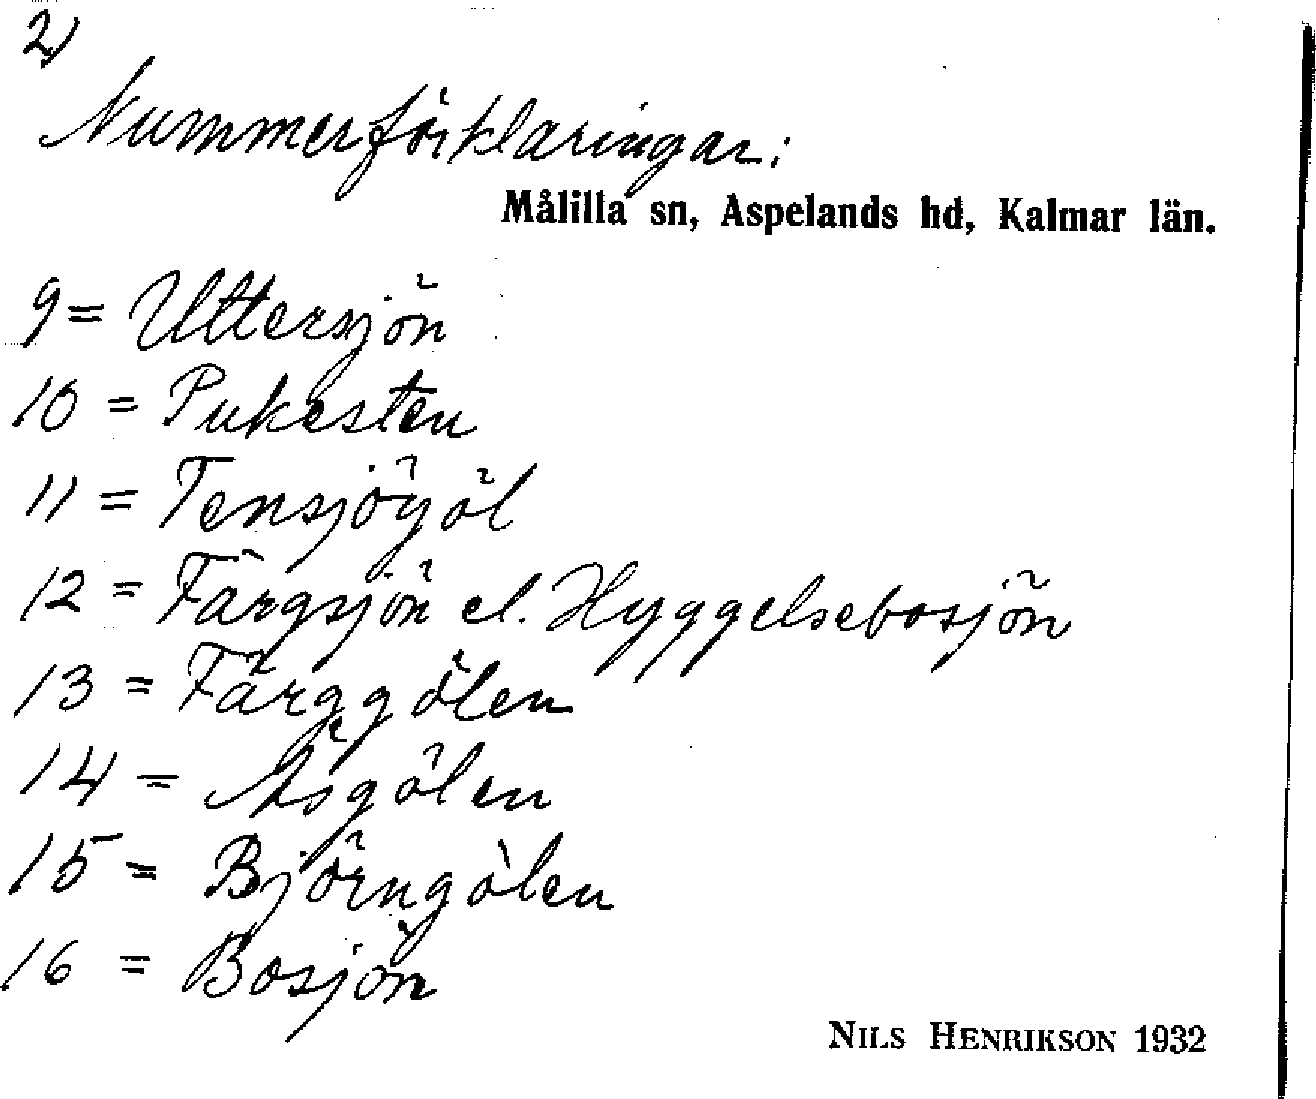 2)
Nummerförklaringar:
Målilla sn, Aspelands hd, Kalmar län.
9 = Uttersjön
10 = Pukesten
11 = Tensjögöl
12 = Färgsjön el. Hyggelsebosjön
13 = Färggölen
14 = Åsgölen
15 = Björngölen
16 = Bosjön
NILS HENRIKSON 1932